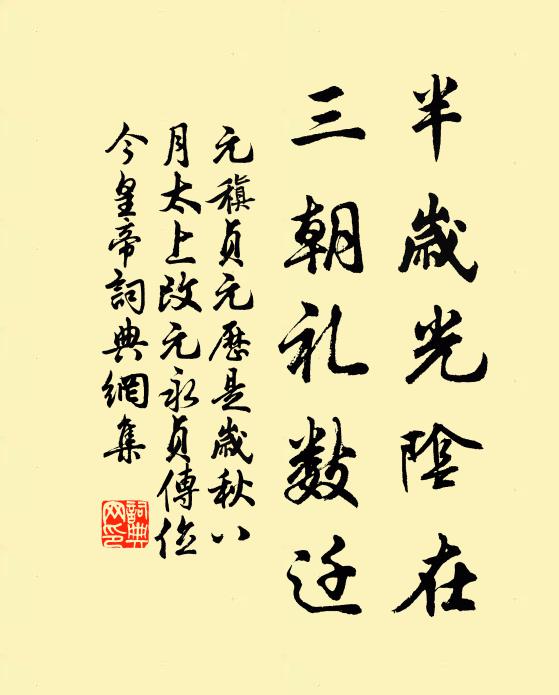 半歲光陰在
三朝礼数迁
元稹贞元历是歲秋八
月太上改元永贞傳位
今皇帝詞典網集
詞典网印